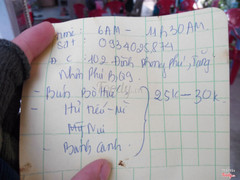 6AM – 11h30AM.
SĐT: 0934025879
Đ C: 102 Đình Phong Phú, Tăng
Nhơn Phú B, Q9
- Bún Bò Huế
- Hủ Tiếu - Mì
Mỹ Nui
- Bánh Canh
25k – 30k